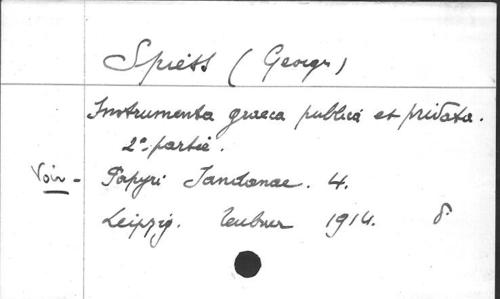 Spiess (Georg)
Instrumenta graeca publica et privata.
2e partie.
Voir - Papyri Iandanae. 4.
Leipzig. Teubner 1914. 8°